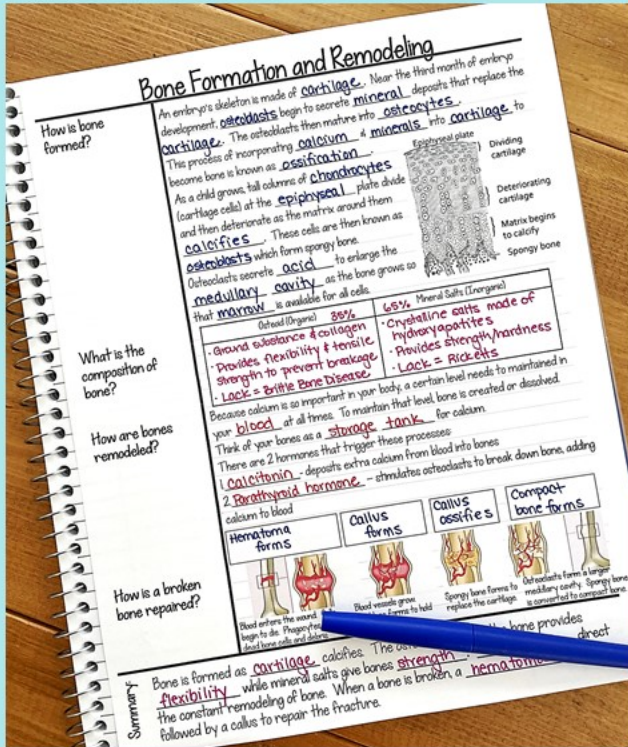 Bone Formation and Remodeling
How is bone
formed?
An embryo's skeleton is made of cartilage. Near the third month of embryo
development, osteoblasts begin to secrete mineral deposits that replace the
cartilage. The osteoblasts then mature into osteocytes.
This process of incorporating calcium & minerals into cartilage to
become bone is known as ossification.
As a child grows, tall columns of chondrocytes
(cartilage cells) at the epiphyseal plate divide
and then deteriorate as the matrix around them
calcifies. These cells are then known as
osteoblasts which form spongy bone.
Osteoclasts secrete acid to enlarge the
medullary cavity as the bone grows so
that marrow is available for all cells.
Epiphyseal plate
Dividing
cartilage
Deteriorating
cartilage
Matrix begins
to calcify
Spongy bone
What is the
composition of
bone?
Osteod (Organic) 35%
• Ground substance & collagen
• Provides flexibility & tensile
strength to prevent breakage
• Lack = Brittle Bone Disease
65% Mineral Salts (Inorganic)
• Crystalline salts made of
hydroxyapatites
• Provides strength/hardness
• Lack = Rickets
How are bones
remodeled?
Because calcium is so important in your body, a certain level needs to maintained in
your blood at all times. To maintain that level, bone is created or dissolved.
Think of your bones as a storage tank for calcium.
There are 2 hormones that trigger these processes:
1. calcitonin - deposits extra calcium from blood into bones
2. Parathyroid hormone - stimulates osteoclasts to break down bone, adding
calcium to blood
How is a broken
bone repaired?
Hematoma
forms
Callus
forms
Callus
ossifies
Compact
bone forms
Blood enters the wound.
begin to die. Phagocytes
dead bone cells and debris
Blood vessels grow.
forms to hold
Spongy bone forms to
replace the cartilage.
Osteoclasts form a larger
medullary cavity. Spongy bone
is converted to compact bone.
Summary:
Bone is formed as cartilage calcifies. The bone provides
flexibility while mineral salts give bones strength. direct
the constant remodeling of bone. When a bone is broken, a
followed by a callus to repair the fracture.